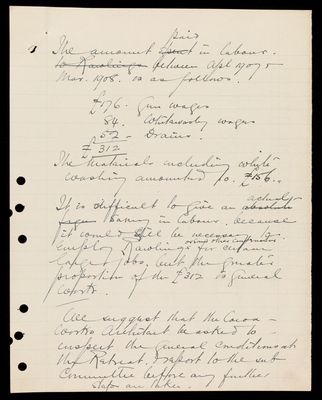 Paid
The amount spent in labour.
to Rawlings between Apl 1907 &
Mar. 1908. is as follows.
£176. Gun wages
84. Whitewash wages
52 - Drains.
£ 312
The Materials including white
washing amounted to. £156..
actual
It is difficult to give an absolute
saving in labour, because
it would still be necessary to
employ Rawlings for certain
or some other contractors
larger jobs, but the greater
proportion of the £312 is general
work.
We suggest that the Cocoa
Works Architect be asked to
inspect the general conditions at
the Retreat, & report to the sub
Committee before any further
steps are taken.